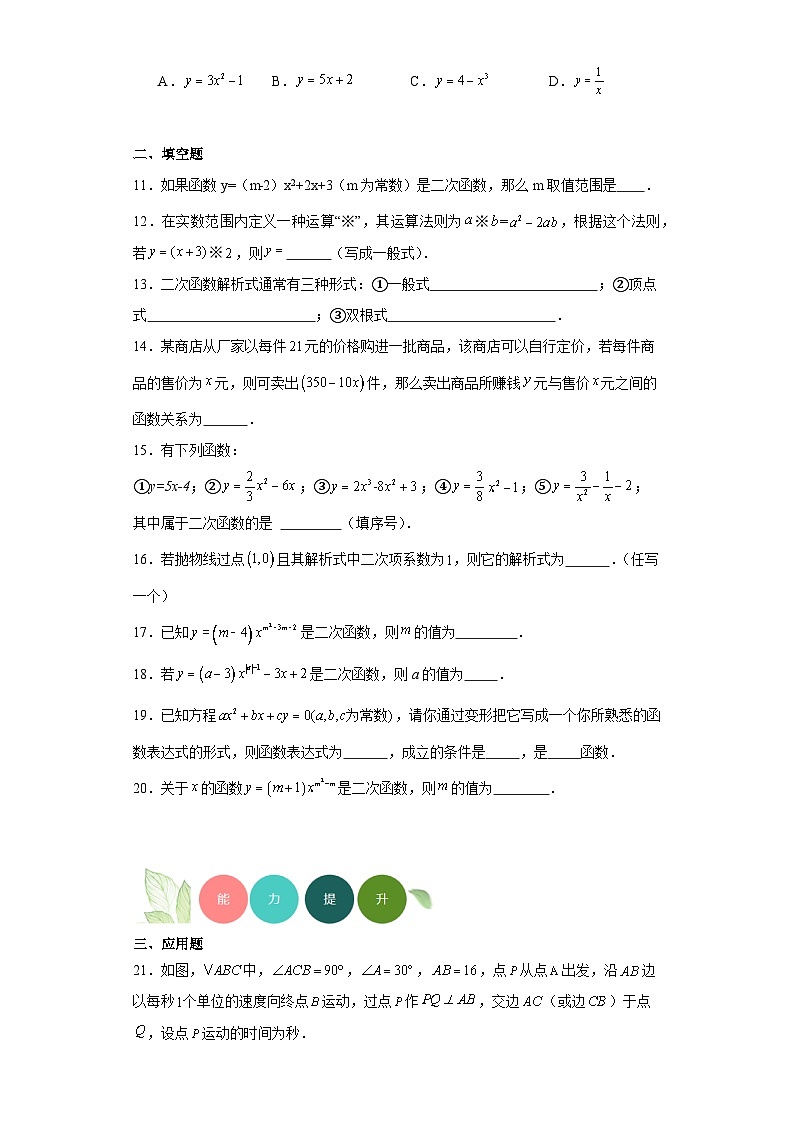 A．y = 3x² − 1 B．y = 5x + 2 C．y = 4 − x³ D．y = 1/x
二、填空题
11．如果函数 y=（m-2）x²+2x+3（m 为常数）是二次函数，那么 m 取值范围是____．
12．在实数范围内定义一种运算“※”，其运算法则为 a ※ b = a² − 2ab，根据这个法则，
若 y = (x + 3) ※ 2，则 y = ______（写成一般式）．
13．二次函数解析式通常有三种形式：①一般式________________________；②顶点
式________________________；③双根式________________________．
14．某商店从厂家以每件 21 元的价格购进一批商品，该商店可以自行定价，若每件商
品的售价为 x 元，则可卖出 (350 − 10x) 件，那么卖出商品所赚钱 y 元与售价 x 元之间的
函数关系为______．
15．有下列函数：
①y=5x-4；②y = 2/3 x² − 6x；③y = 2x³-8x² + 3；④y = 3/8 x² − 1；⑤y = 3/x² − 1/x − 2；
其中属于二次函数的是 ________（填序号）．
16．若抛物线过点 (1,0) 且其解析式中二次项系数为 1，则它的解析式为______．（任写
一个）
17．已知 y = (m − 4) x^(m²−3m−2) 是二次函数，则 m 的值为________．
18．若 y = (a − 3) x^(|a|−1) − 3x + 2 是二次函数，则 a 的值为____．
19．已知方程 ax² + bx + cy = 0(a,b,c为常数)，请你通过变形把它写成一个你所熟悉的函
数表达式的形式，则函数表达式为______，成立的条件是____，是____函数．
20．关于 x 的函数 y = (m + 1) x^(m²−m) 是二次函数，则 m 的值为_______．
能 力 提 升
三、应用题
21．如图，VABC 中，∠ACB = 90°，∠A = 30°，AB = 16，点 P 从点 A 出发，沿 AB 边
以每秒 1 个单位的速度向终点 B 运动，过点 P 作 PQ ⊥ AB，交边 AC（或边 CB）于点
Q，设点 P 运动的时间为秒．